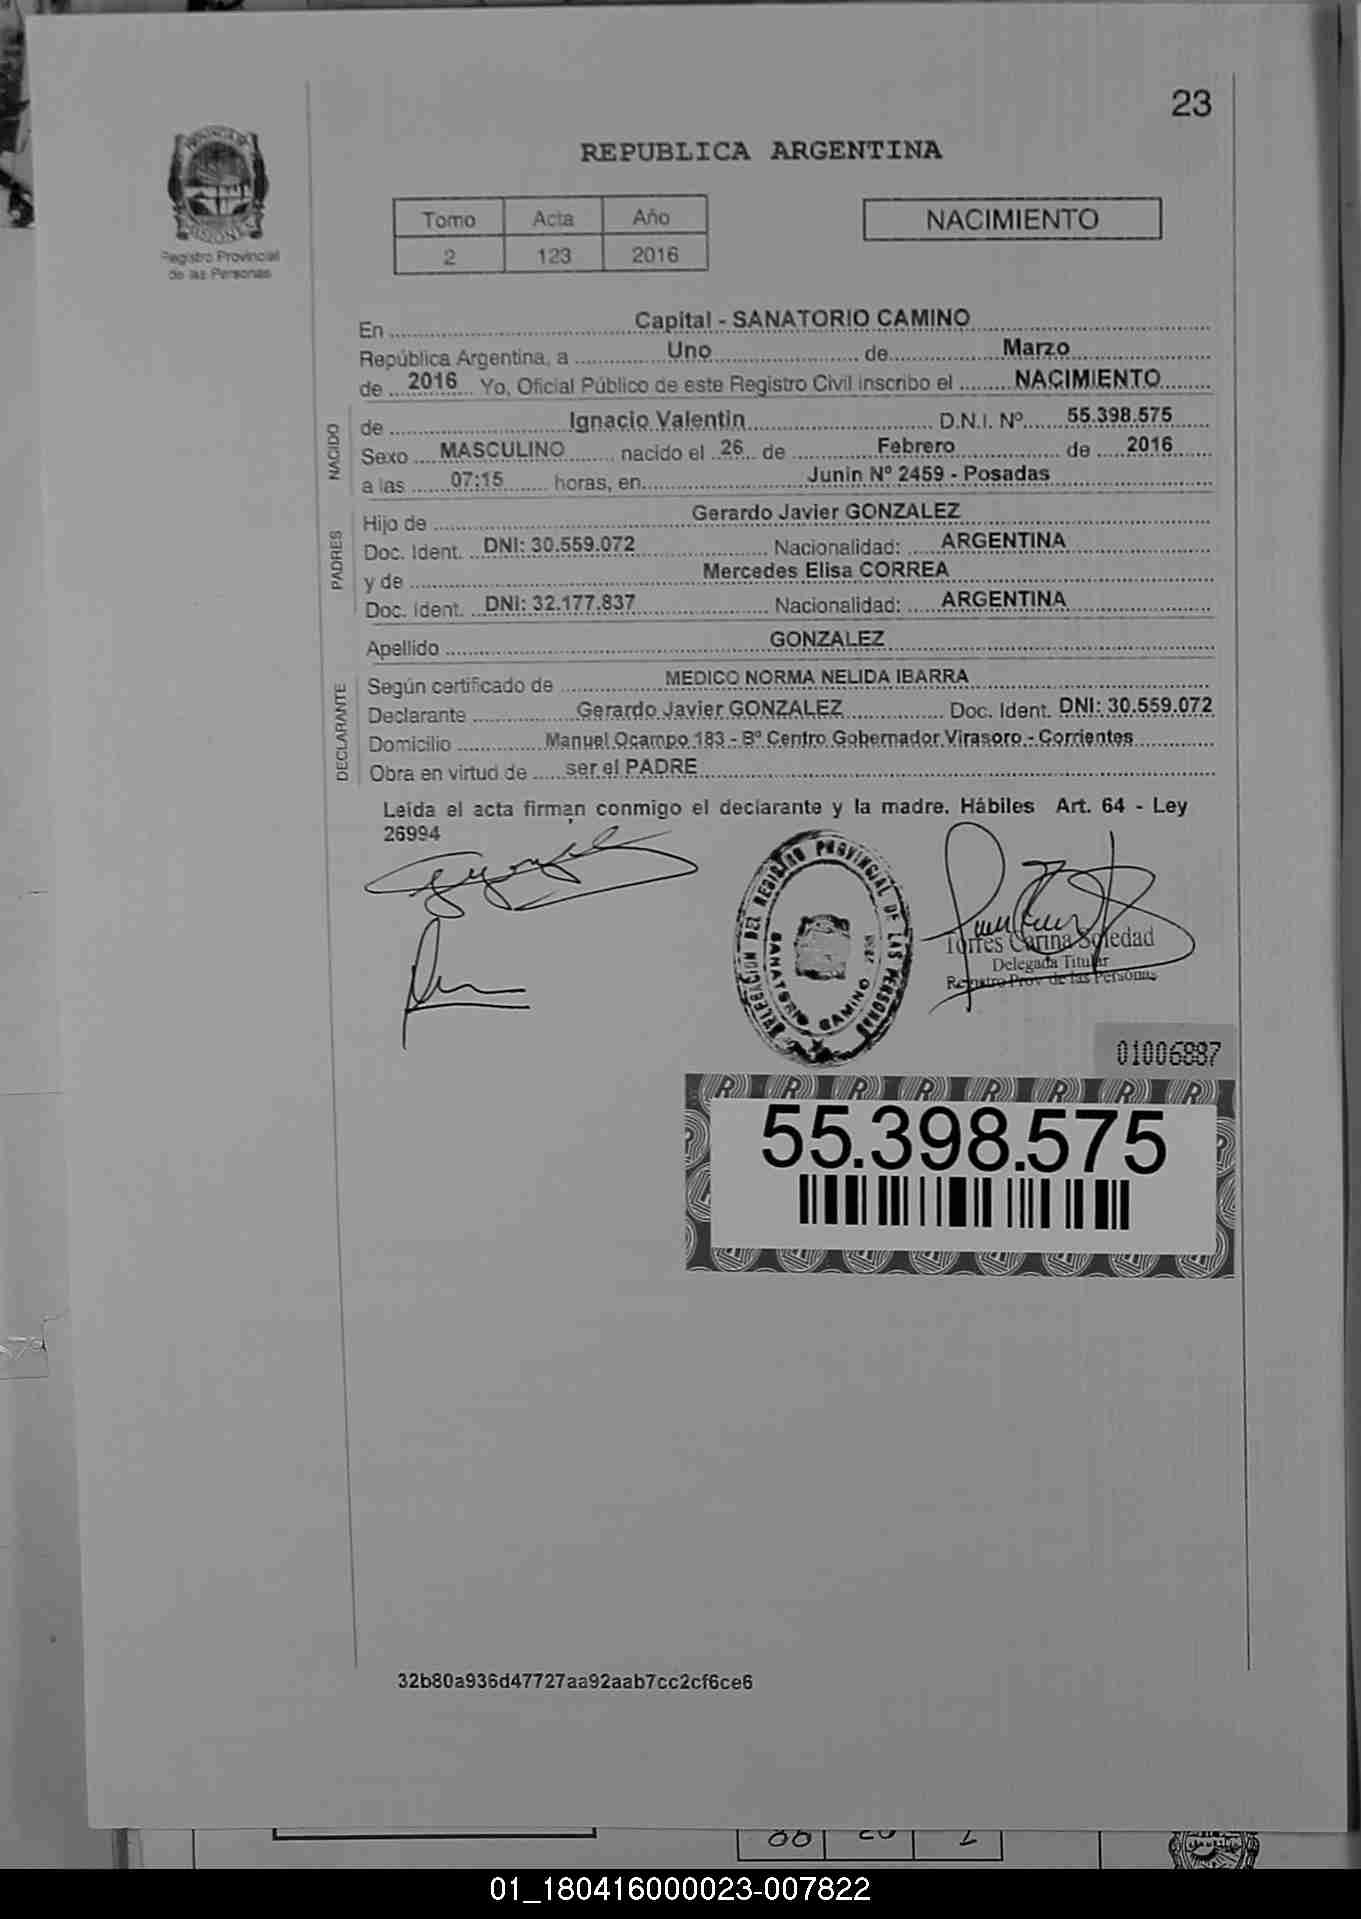 23
REPUBLICA ARGENTINA
Registro Provincial
de las Personas
Tomo Acta Año
2 123 2016
NACIMIENTO
En Capital - SANATORIO CAMINO
República Argentina, a Uno de Marzo
de 2016 Yo, Oficial Público de este Registro Civil inscribo el NACIMIENTO
NACIDO
de Ignacio Valentin D.N.I. Nº 55.398.575
Sexo MASCULINO nacido el 26 de Febrero de 2016
a las 07:15 horas, en Junin Nº 2459 - Posadas
PADRES
Hijo de Gerardo Javier GONZALEZ
Doc. Ident. DNI: 30.559.072 Nacionalidad: ARGENTINA
y de Mercedes Elisa CORREA
Doc. Ident. DNI: 32.177.837 Nacionalidad: ARGENTINA
Apellido GONZALEZ
DECLARANTE
Según certificado de MEDICO NORMA NELIDA IBARRA
Declarante Gerardo Javier GONZALEZ Doc. Ident. DNI: 30.559.072
Domicilio Manuel Ocampo 183 - Bº Centro Gobernador Virasoro - Corrientes
Obra en virtud de ser el PADRE
Leída el acta firman conmigo el declarante y la madre. Hábiles Art. 64 - Ley
26994
DELEGACION DEL REGISTRO PROVINCIAL DE LAS PERSONAS
SANATORIO CAMINO
Torres Carina Soledad
Delegada Titular
Registro Prov. de las Personas
01006887
55.398.575
32b80a936d47727aa92aab7cc2cf6ce6
01_180416000023-007822